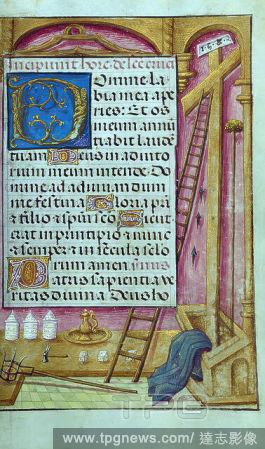 Incipiunt hore de s͂ce cruci
Domine la
bia mea ape
ries: Et os
meum annū
tiabit laudē
tuam Deus in adiuto
rium meum intende. Do
mine ad adiuuandum
me festina Gloria pr̄i
& filio & spūi sc̄o Sicut
erat in principio & nunc
& semper & in secula seclo
rum amen. ym̄s
Patris sapientia ve
ritas diuina Deus ho
TPG
www.tpgnews.com / 達志影像